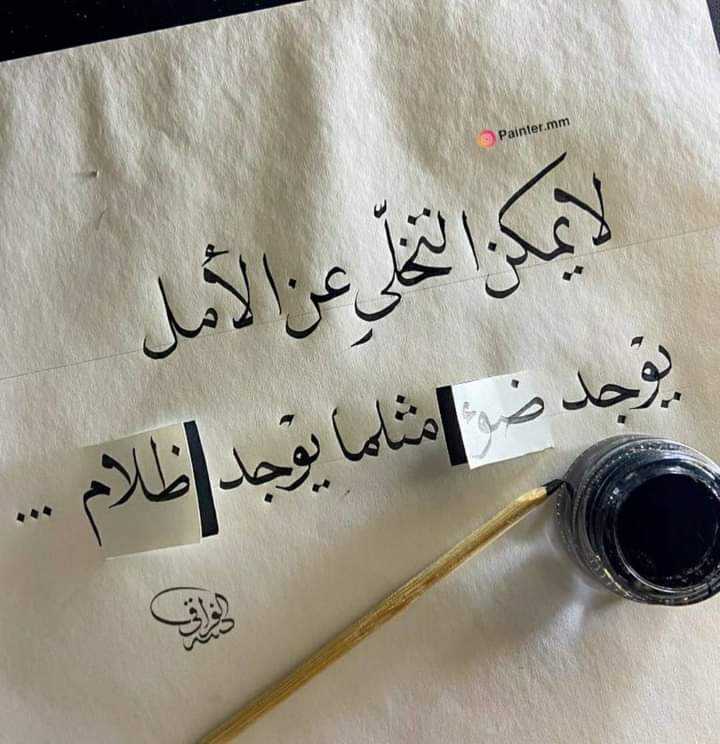 Painter.mm
لا يمكن التخلّي عن الأمل
يوجد ضوء مثلما يوجد ظلام ...